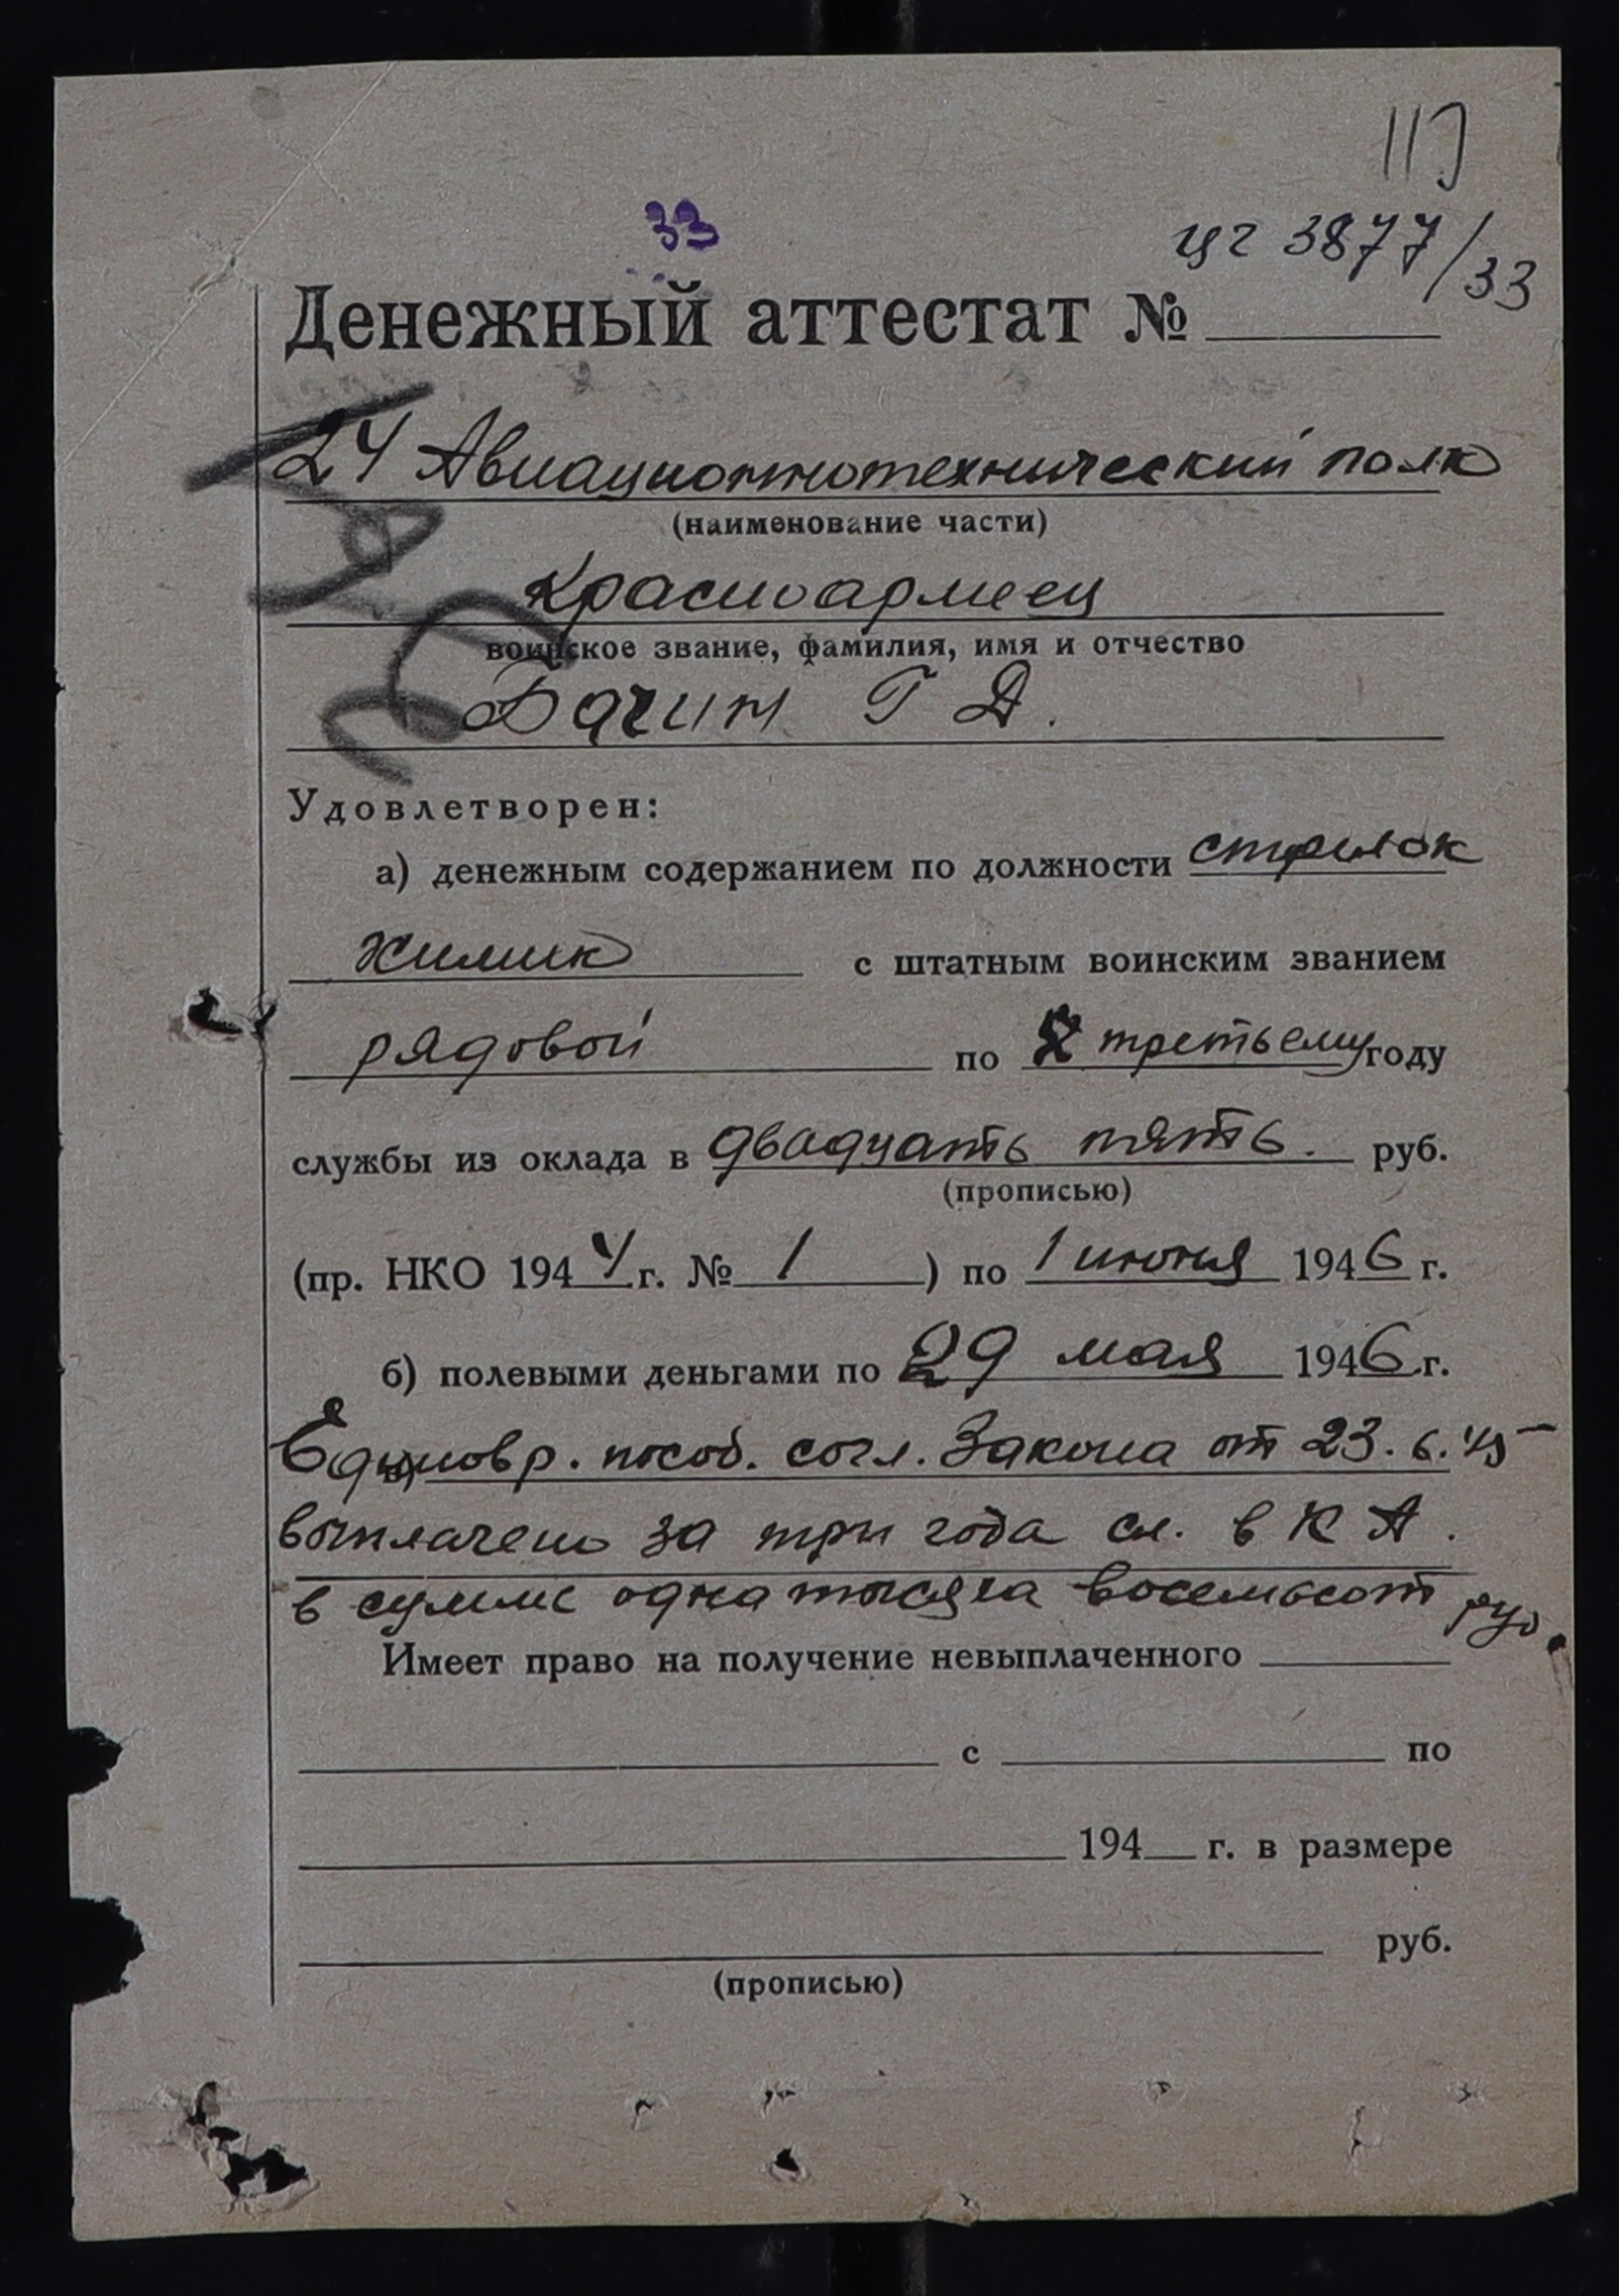 33
цг 3877/33
Денежный аттестат №
24 Авиационнотехнический полк
(наименование части)
Красноармеец
воинское звание, фамилия, имя и отчество
Багин Г Д.
Удовлетворен:
а) денежным содержанием по должности стрелок
химик с штатным воинским званием
рядовой по третьему году
службы из оклада в двадцать пять. руб.
(прописью)
(пр. НКО 1944 г. № 1 ) по 1 июня 1946 г.
б) полевыми деньгами по 29 мая 1946 г.
Единовр. пособ. согл. Закона от 23.6.45
выплачено за три года сл. в К А.
в сумме одна тысяча восемьсот руб.
Имеет право на получение невыплаченного
с по
194 г. в размере
руб.
(прописью)